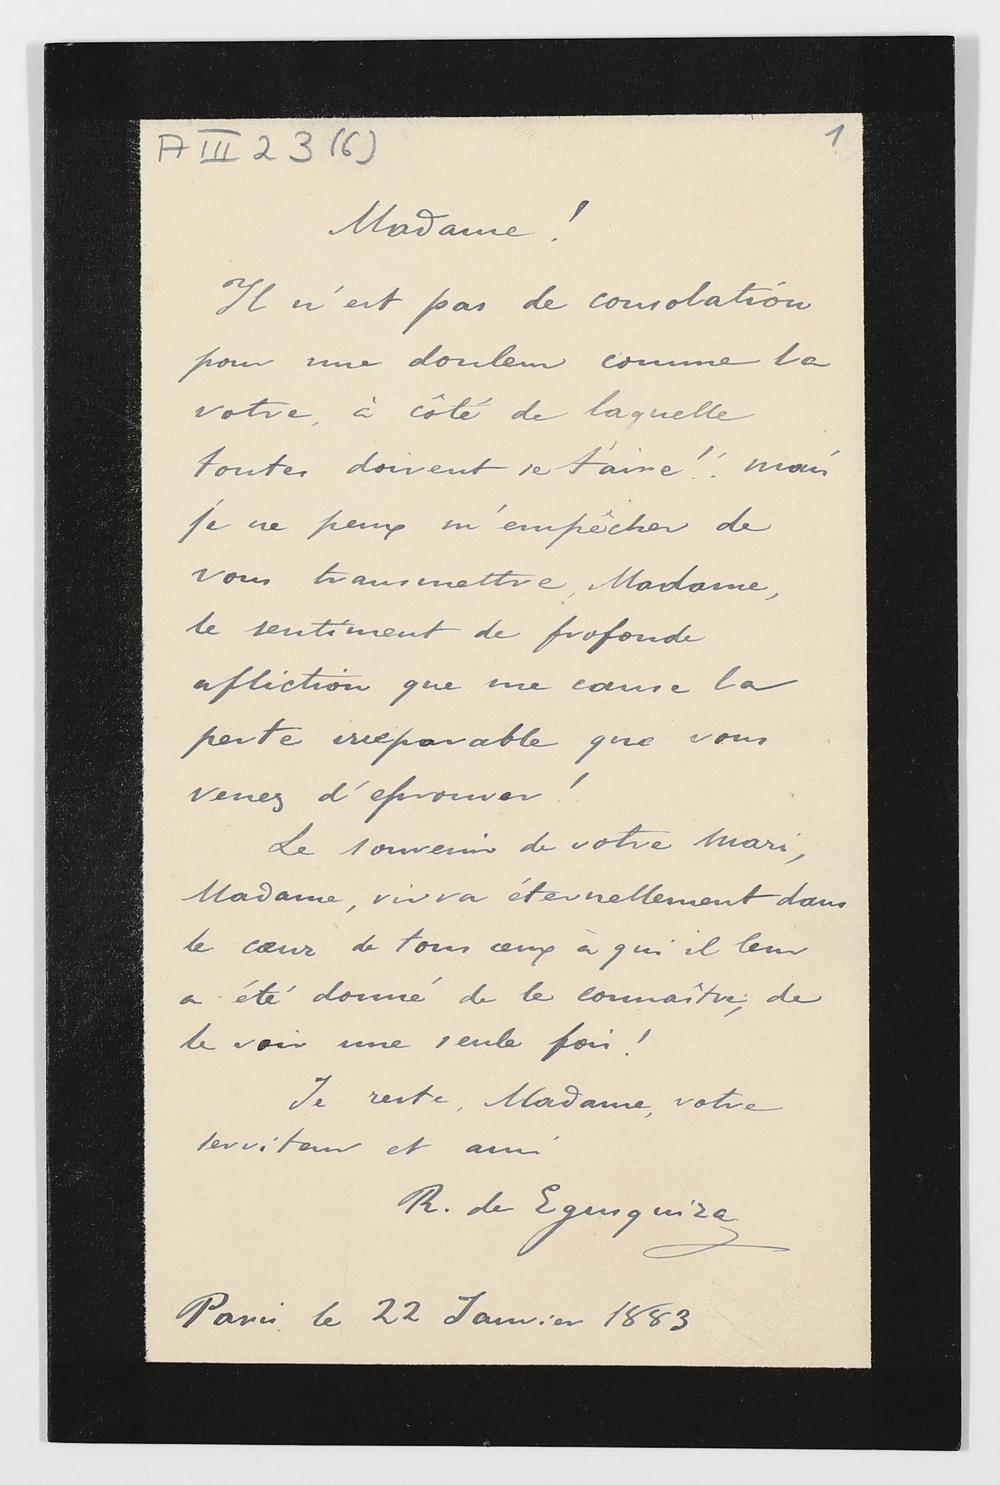 A III 23 (6)
1
Madame !
Il n'est pas de consolation
pour une douleur comme la
votre, à côté de laquelle
toutes doivent se taire!! mais
je ne peux m'empêcher de
vous transmettre, Madame,
le sentiment de profonde
afliction que me cause la
perte irreparable que vous
venez d'éprouver !
Le souvenir de votre mari,
Madame, vivra éternellement dans
le cœur de tous ceux à qui il leur
a été donné de le connaître, de
le voir une seule fois !
Je reste, Madame, votre
serviteur et ami
R. de Egusquiza
Paris le 22 Janvier 1883